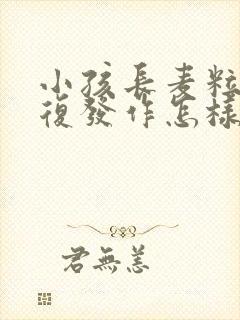 小孩長麦粒
復發作怎樣
君無恙